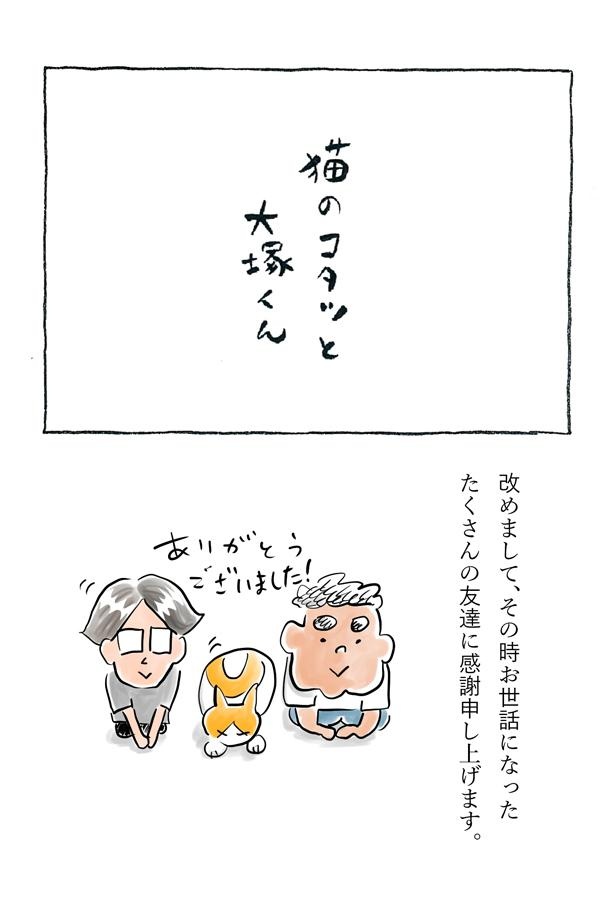 猫のコタツと
大塚くん
改めまして、その時お世話になった
たくさんの友達に感謝申し上げます。
ありがとう
ございました!